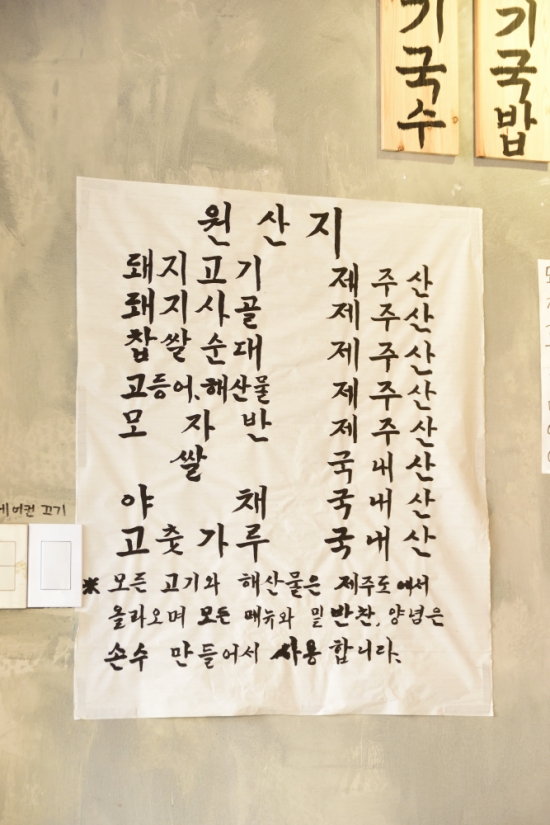 기국수
기국밥
원산지
돼지고기 제주산
돼지사골 제주산
찹쌀순대 제주산
고등어,해산물 제주산
모자반 제주산
쌀 국내산
야채 국내산
고춧가루 국내산
에어컨 끄기
※ 모든 고기와 해산물은 제주도에서
올라오며 모든 메뉴와 밑반찬, 양념은
손수 만들어서 사용합니다.